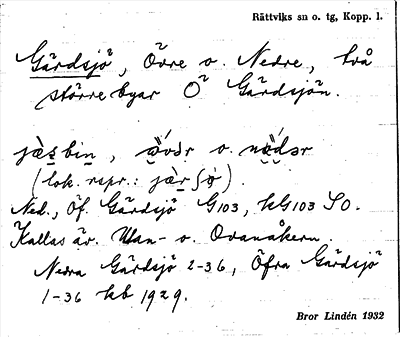 Rättviks sn o. tg, Kopp. l.
Gärdsjö, Övre o. Nedre, två
större byar Ö Gärdsjön.
o.
(lok. rspr.:
Ned., Öf. Gärdsjö G103, hG103 SO.
Kallas äv. Utan- o. Ovanåkern.
Nedra Gärdsjö 2-36, Öfra Gärdsjö
1-36 kb 1929.
Bror Lindén 1932